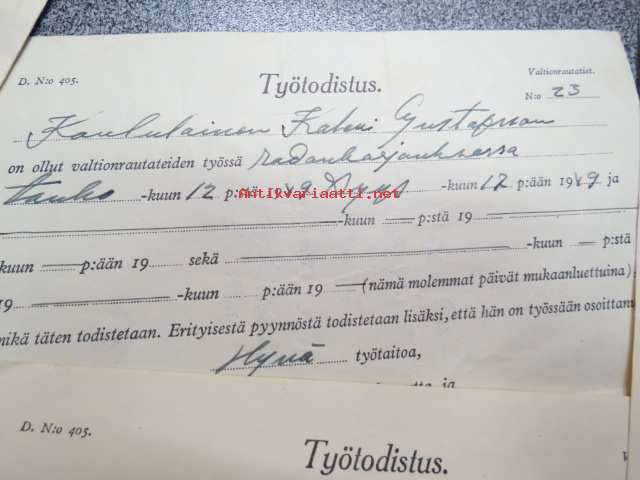 D. N:o 405.
Työtodistus.
Valtionrautatiet.
N:o 23
Gustafsson
on ollut valtionrautateiden työssä radankorjauksessa
Touko -kuun 12 p:stä 1949 Syys -kuun 12 p:ään 1949 ja
Antikvariaatti.net
-kuun p:stä 19
-kuun p:ään 19 sekä -kuun p:stä
19 -kuun p:ään 19 (nämä molemmat päivät mukaanluettuina),
mikä täten todistetaan. Erityisestä pyynnöstä todistetaan lisäksi, että hän on työssään osoittanut
Hyvä työtaitoa,
ja
D. N:o 405.
Työtodistus.